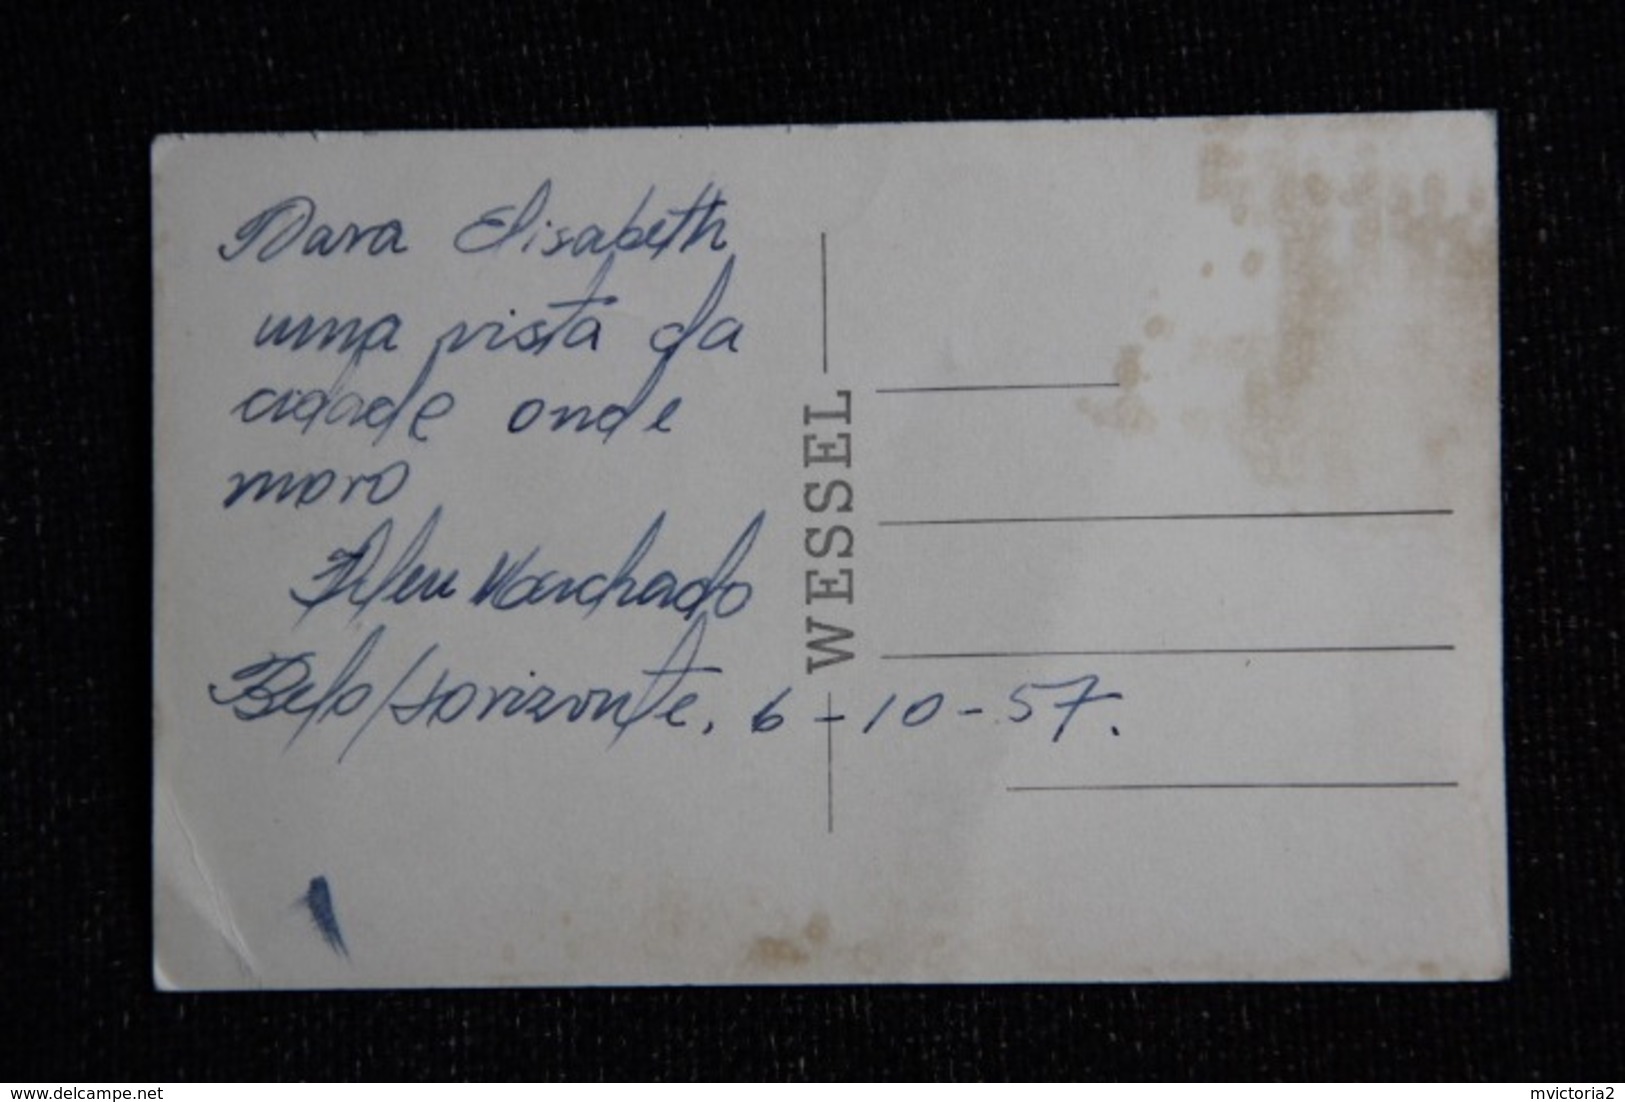 Para Elisabeth
uma vista da
cidade onde
moro
Machado
Belo Horizonte, 6-10-57.
WESSEL
delcampe.net
mvictoria2